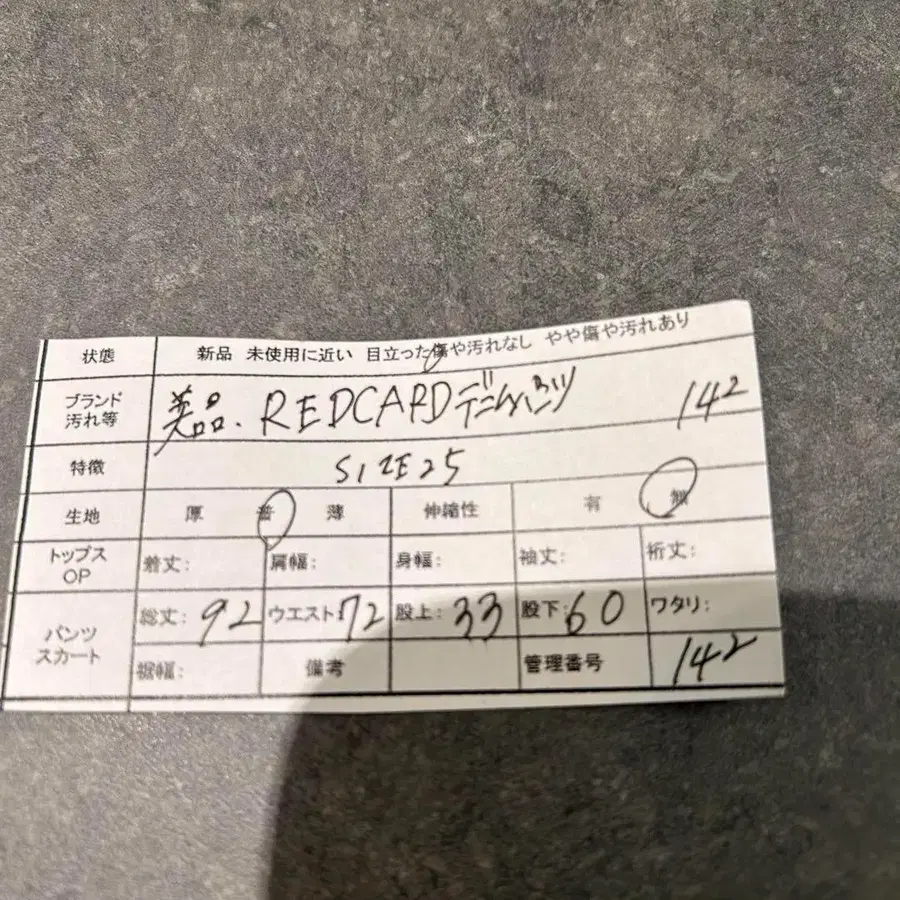 状態 新品 未使用に近い 目立った傷や汚れなし やや傷や汚れあり
ブランド 汚れ等 美品. REDCARDデニムパンツ 142
特徴 SIZE25
生地 厚 普 薄 伸縮性 有 無
トップス OP 着丈: 肩幅: 身幅: 袖丈: 裄丈:
パンツ スカート 総丈: 92 ウエスト: 72 股上: 33 股下: 60 ワタリ:
裾幅: 備考 管理番号 142